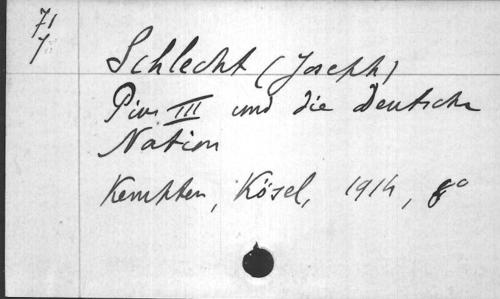 71
7
Schlecht (Joseph)
Pius III und die Deutsche
Nation
Kempten, Kösel, 1914, 8°